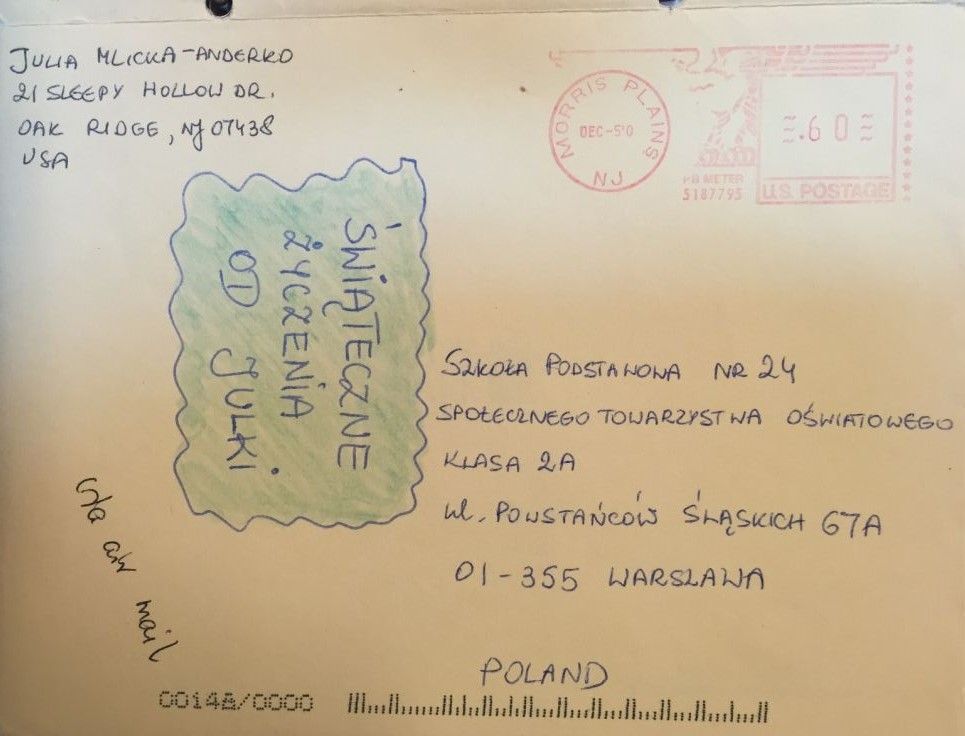 JULIA MLICKA-ANDERKO
21 SLEEPY HOLLOW DR.
OAK RIDGE, NJ 07438
USA
MORRIS PLAINS
DEC-5'0
NJ
PB METER
5187795
.60
U.S. POSTAGE
ŚWIĄTECZNE
ŻYCZENIA
OD JULKI
SZKOŁA PODSTAWOWA NR 24
SPOŁECZNEGO TOWARZYSTWA OŚWIATOWEGO
KLASA 2A
ul. POWSTAŃCÓW ŚLĄSKICH 67A
01-355 WARSZAWA
POLAND
via air mail
00148/0000